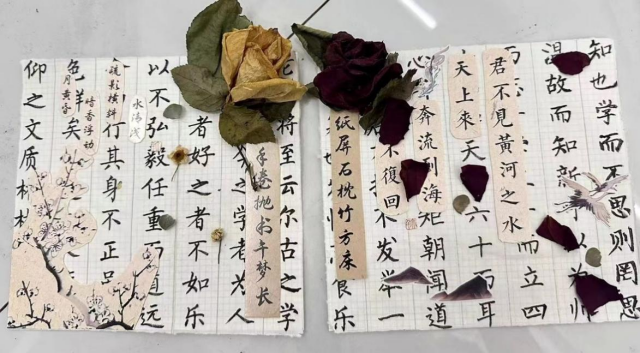 知也学而不思则罔思
温故而知新
为师
君不見黃河之水
而立四
天上來
天
六十而耳
奔流到海
矩朝闻道
不復回
不发举一
纸屏石枕竹方床
乐
将至云尔古之学
手倦抛书午梦长
之学者为人
者好之者不如乐
以不弘毅任重而道远
水清浅
其身不正
疏影橫斜
暗香浮动
月黄昏
色
鲜矣
仰之文质彬